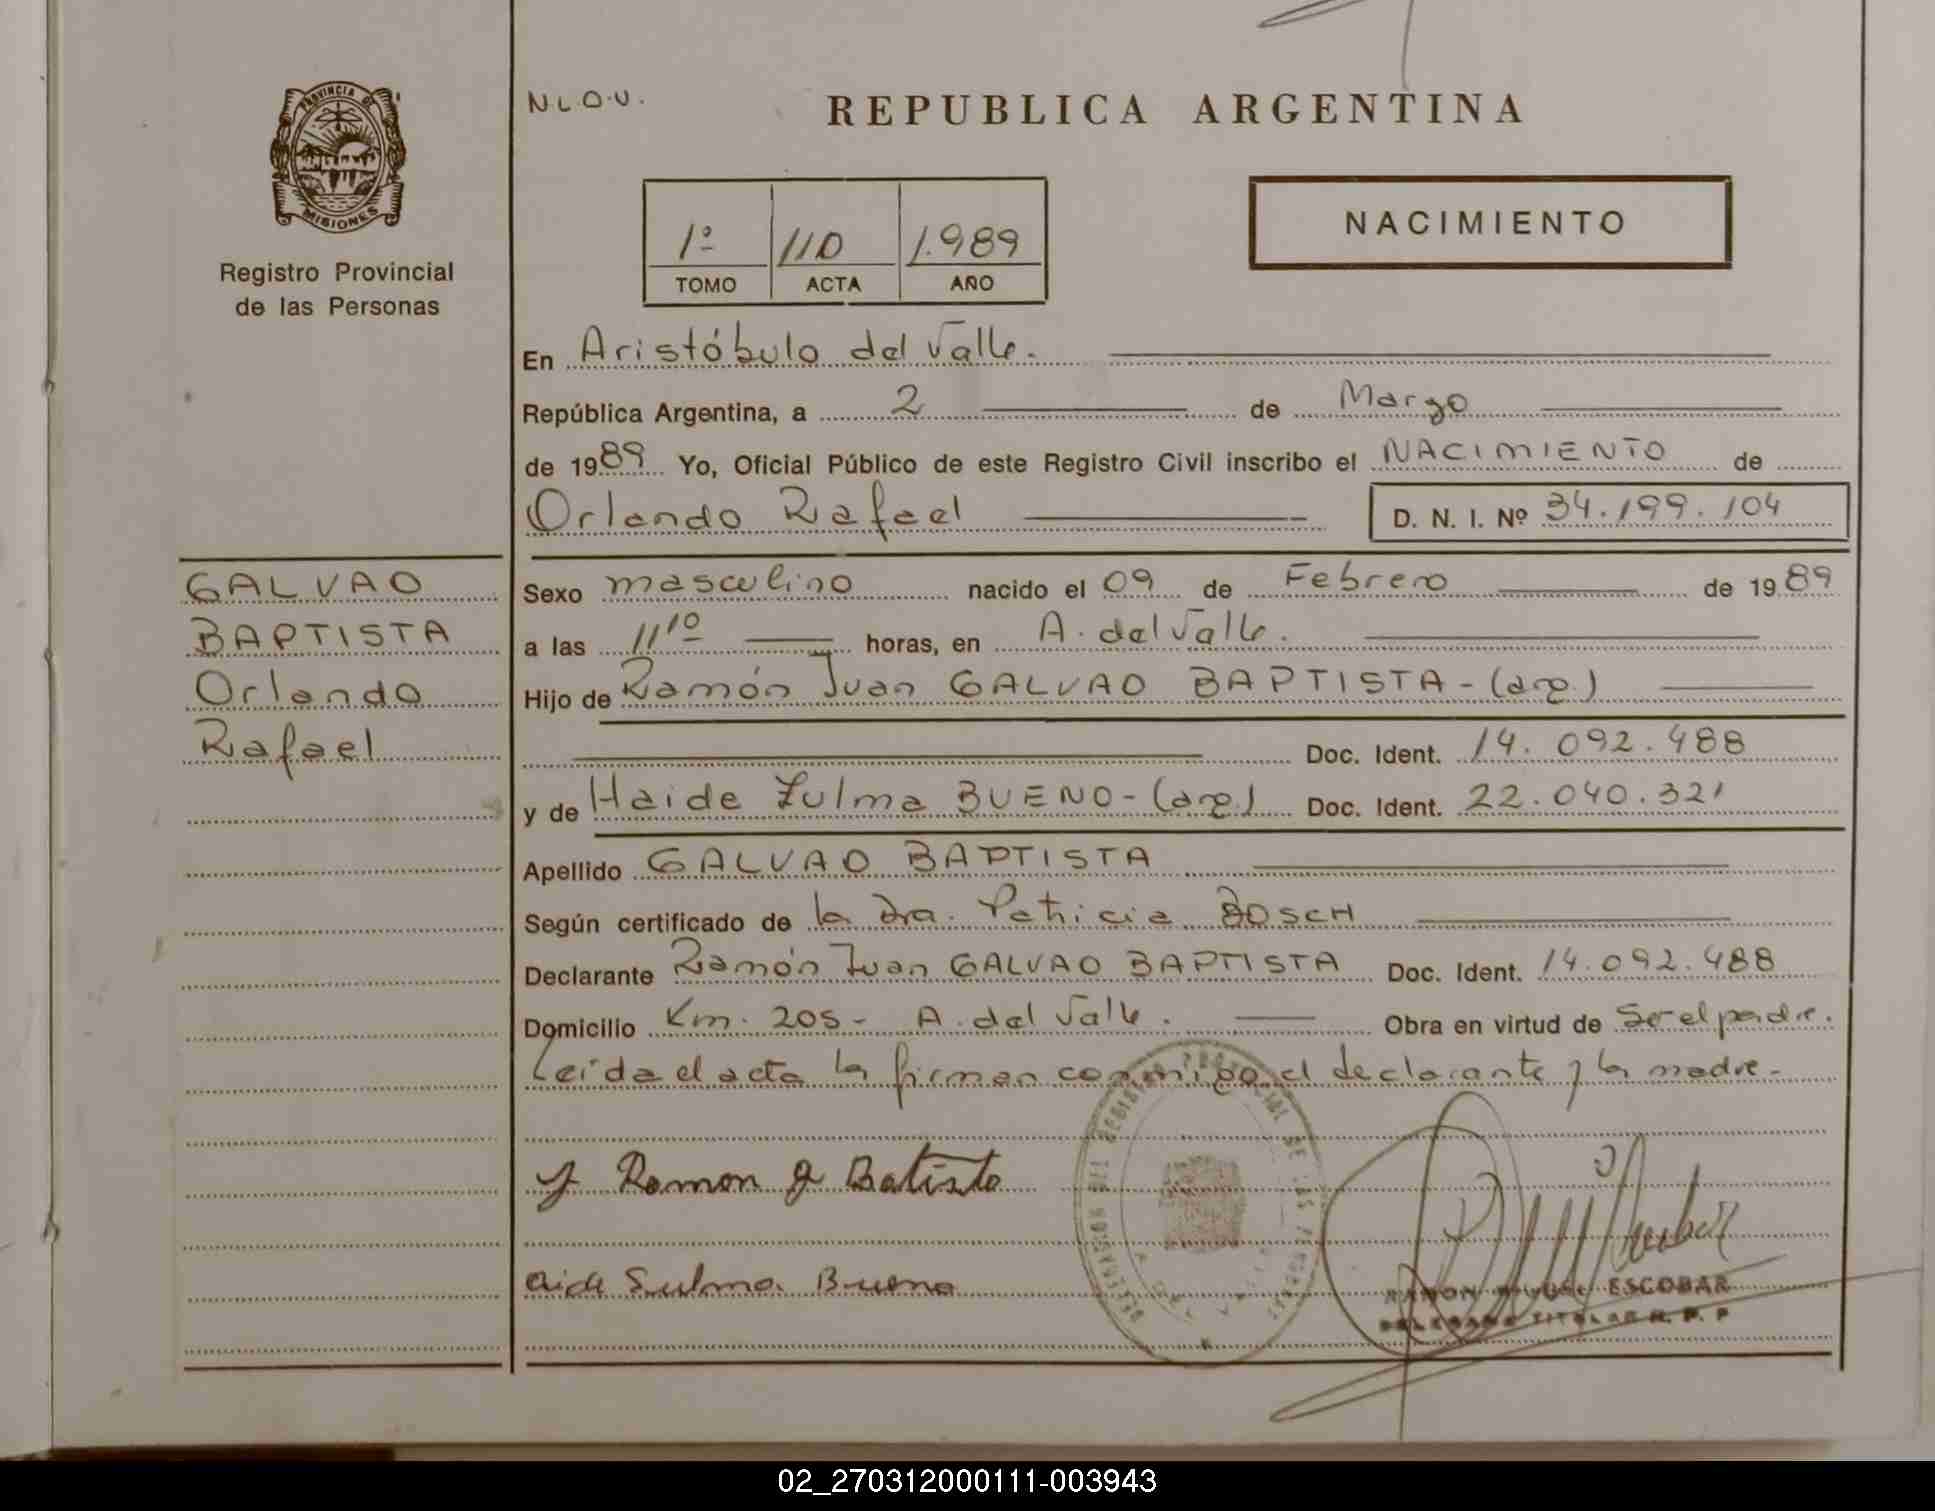 PROVINCIA DE
MISIONES
Registro Provincial
de las Personas
N.L.O.U.
REPUBLICA ARGENTINA
1º 110 1.989
TOMO ACTA AÑO
NACIMIENTO
En Aristóbulo del Valle.
República Argentina, a 2 de Marzo
de 1989 Yo, Oficial Público de este Registro Civil inscribo el NACIMIENTO de
Orlando Rafael D. N. I. Nº 34.199.104
GALVAO
BAPTISTA
Orlando
Rafael
Sexo masculino nacido el 09 de Febrero de 1989
a las 11 10 horas, en A. del Valle.
Hijo de Ramón Juan GALVAO BAPTISTA - (arg.)
Doc. Ident. 14.092.488
y de Haide Zulma BUENO - (arg.) Doc. Ident. 22.040.321
Apellido GALVAO BAPTISTA
Según certificado de la Dra. Patricia BOSCH
Declarante Ramón Juan GALVAO BAPTISTA Doc. Ident. 14.092.488
Domicilio Km. 205 - A. del Valle. Obra en virtud de Ser el padre.
Leída el acta la firman conmigo el declarante y la madre.-
Ramon J Batista
aide Sulma Bueno
DELEGACION DEL REGISTRO PROVINCIAL DE LAS PERSONAS
RAMON ESCOBAR
DELEGADO TITULAR R. P. P
02_270312000111-003943